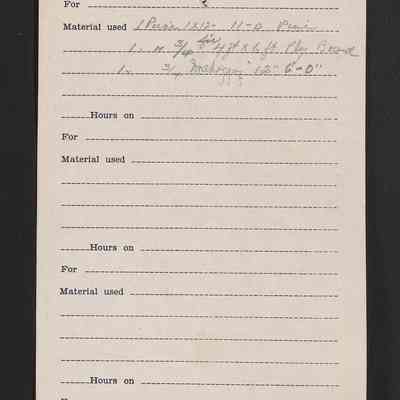 For
Material used 1 Piece 1x12- 11-0
1 " 3/4 fir 4 ft x 6 ft. Ply Board
1 x 3/4 Mahogany 12" 6'-0"
Hours on
For
Material used
Hours on
For
Material used
Hours on